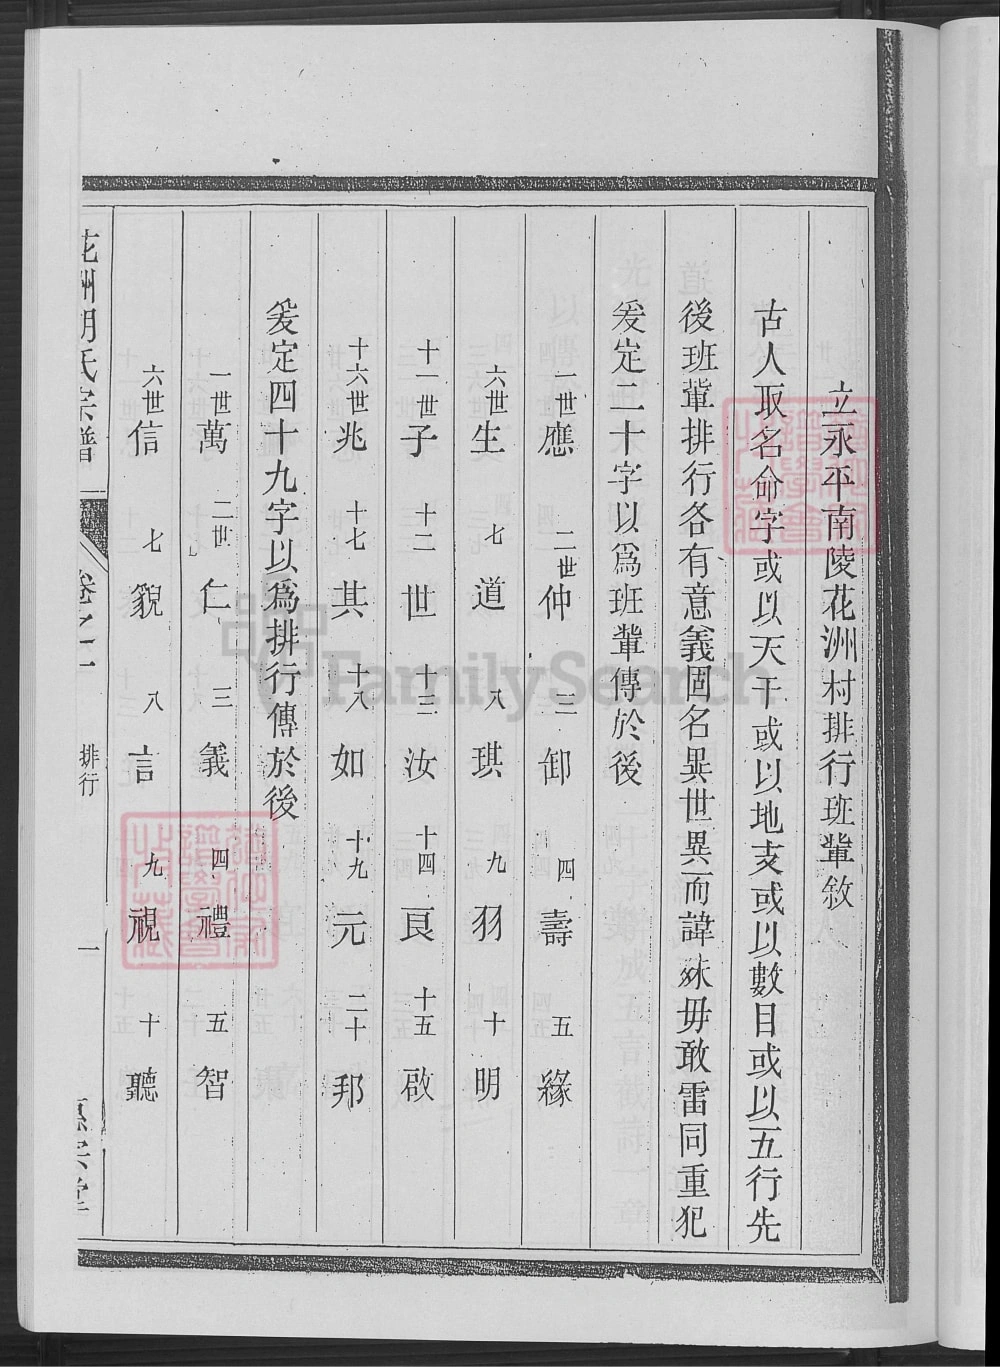 立永平南陵花洲村排行班輩敘
古人取名命字或以天干或以地支或以數目或以五行先
後班輩排行各有意義固名異世異而諱昧毋敢雷同重犯
爰定二十字以爲班輩傳於後
一世應 二世仲 三卸 四壽 五緣
六世生 七道 八琪 九羽 十明
十一世子 十二世 十三汝 十四良 十五啟
十六世兆 十七其 十八如 十九元 二十邦
爰定四十九字以爲排行傳於後
一世萬 二世仁 三義 四禮 五智
六世信 七貌 八言 九視 十聽
花洲胡氏宗譜 卷之一 排行 一 宗堂
FamilySearch